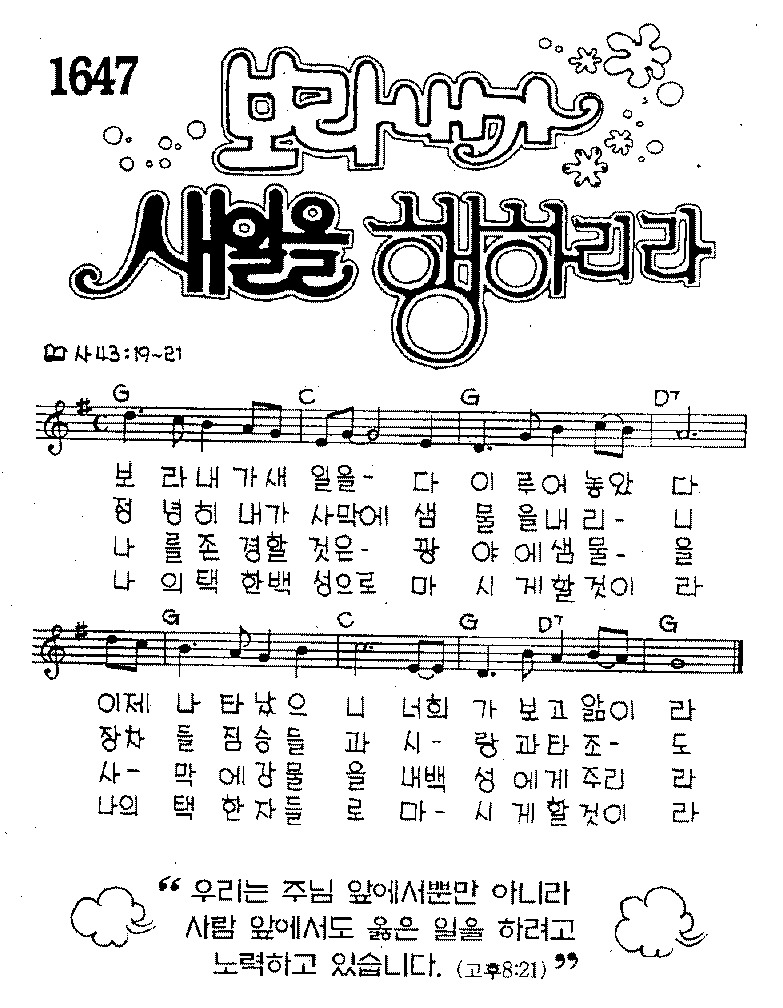 1647
보라 내가
새일을 행하리라
사43:19~21
G C G D7
보 라내 가새 일을- 다 이 루어 놓았 다
정 녕히 내가 사막에 샘 물 을내 리- 니
나 를존 경할 것은- 광 야 에샘 물- 을
나 의택 한백 성으로 마 시 게할 것이 라
G C G D7 G
이제 나 타났으 니 너희 가 보고 앎이 라
장차 들 짐승들 과 시- 랑 과타 조- 도
사- 막 에강물 을 내백 성 에게 주리 라
나의 택 한자들 로 마- 시 게할 것이 라
“ 우리는 주님 앞에서뿐만 아니라
사람 앞에서도 옳은 일을 하려고
노력하고 있습니다. (고후8:21) ”